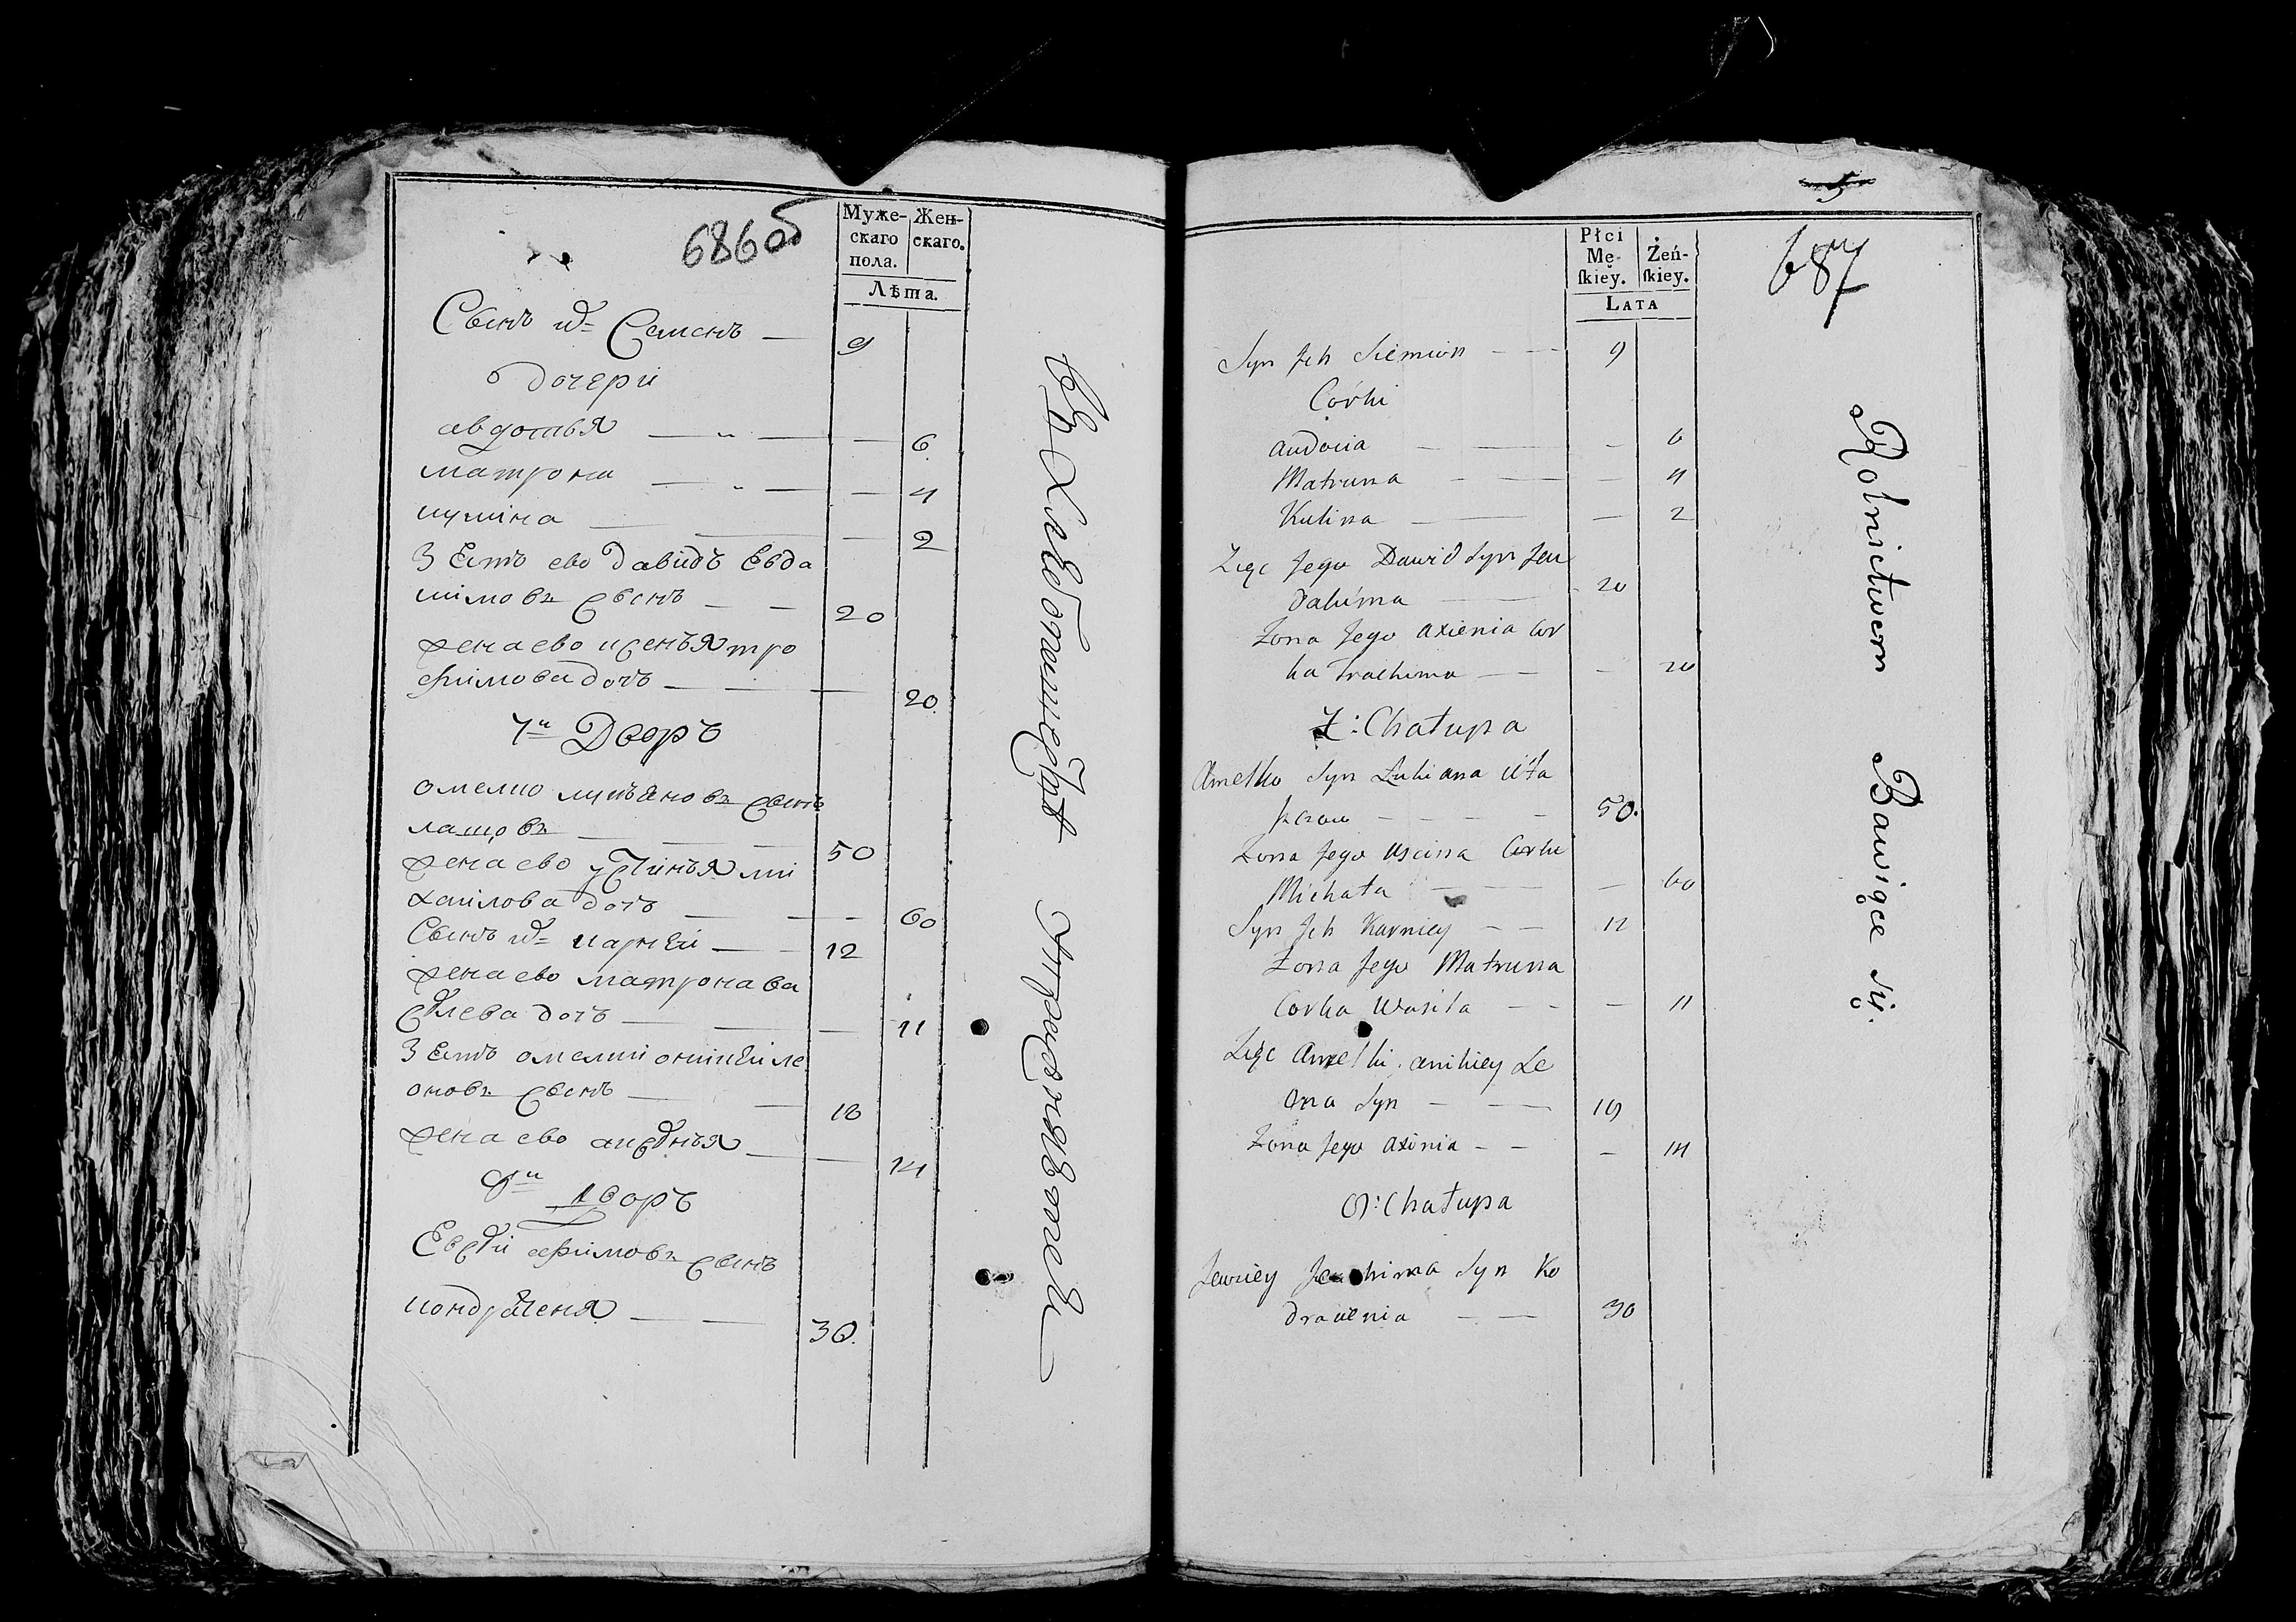 686об
Муже-
скаго
пола.
Жен-
скаго.
Лѣта.
Сынъ их Семенъ — 9
дочери
авдотья — 6
матрона — 4
кулина — 2
Зеть ево давидъ Евда
кимовъ сынъ — 20
жена ево ксенья тро
фимова дочь — 20
7й Дворъ
омелко лукьяновъ сынъ
жена ево устинья ми 50
хаилова дочь — 60
Сынъ их карней — 12
жена ево матрона ва
силева дочь — 11
Зеть омелки оникей ле
оновъ сынъ — 18
жена ево аксинья — 14
8й Дворъ
Евсей ефимовъ сынъ
кондратеня — 30.
Въ хлебопашестве упражняютей
687
Płci
Mę-
ſkiey.
Żeń-
ſkiey.
LATA
Syn Ich Siemion — 9
Córki
Audocia — 6
Matruna — 4
Kulina — 2
Zięc Jego Dawid Syn Jeu
dakima — 20
Zona Jego Axienia Cor
ka Trachima — 20
7: Chałupa
Amelko Syn Łukiana
50.
Zona Jego Uscina Corka
Michała — 60
Syn Ich Karniey — 12
Zona Jego Matruna
Corka Wasila — 11
Zięc Amelki, anikiey Le
ona Syn — 18
Zona Jego Axinia — 14
8: Chałupa
Jewsiey Jeuchima Syn Ko
dracienia — 30
Rolnictwem Bawiące się.